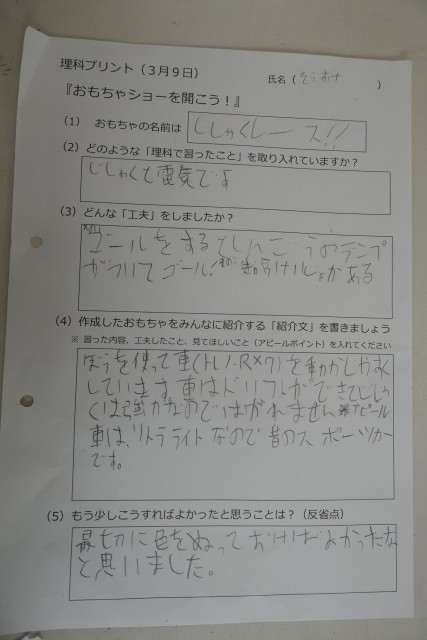 理科プリント（３月９日）
氏名（そうすけ）
『おもちゃショーを開こう！』
（1） おもちゃの名前は
じしゃくレース!!
（2）どのような「理科で習ったこと」を取り入れていますか？
じしゃくと電気です
（3）どんな「工夫」をしましたか？
ゴールをするとしんごうのランプ
がついてゴール!
がある
（4）作成したおもちゃをみんなに紹介する「紹介文」を書きましょう
※ 習った内容、工夫したこと、見てほしいこと（アピールポイント）を入れてください
ぼうを使って車(トレノ・RX7)を動かしやすく
しています。車はドリフトができてじしゃ
くは強力なのではがれません※アピール
車は、リトラライトなので昔のスポーツカー
です。
（5）もう少しこうすればよかったと思うことは？（反省点）
最切に色をぬっておけばよかったな
と思いました。